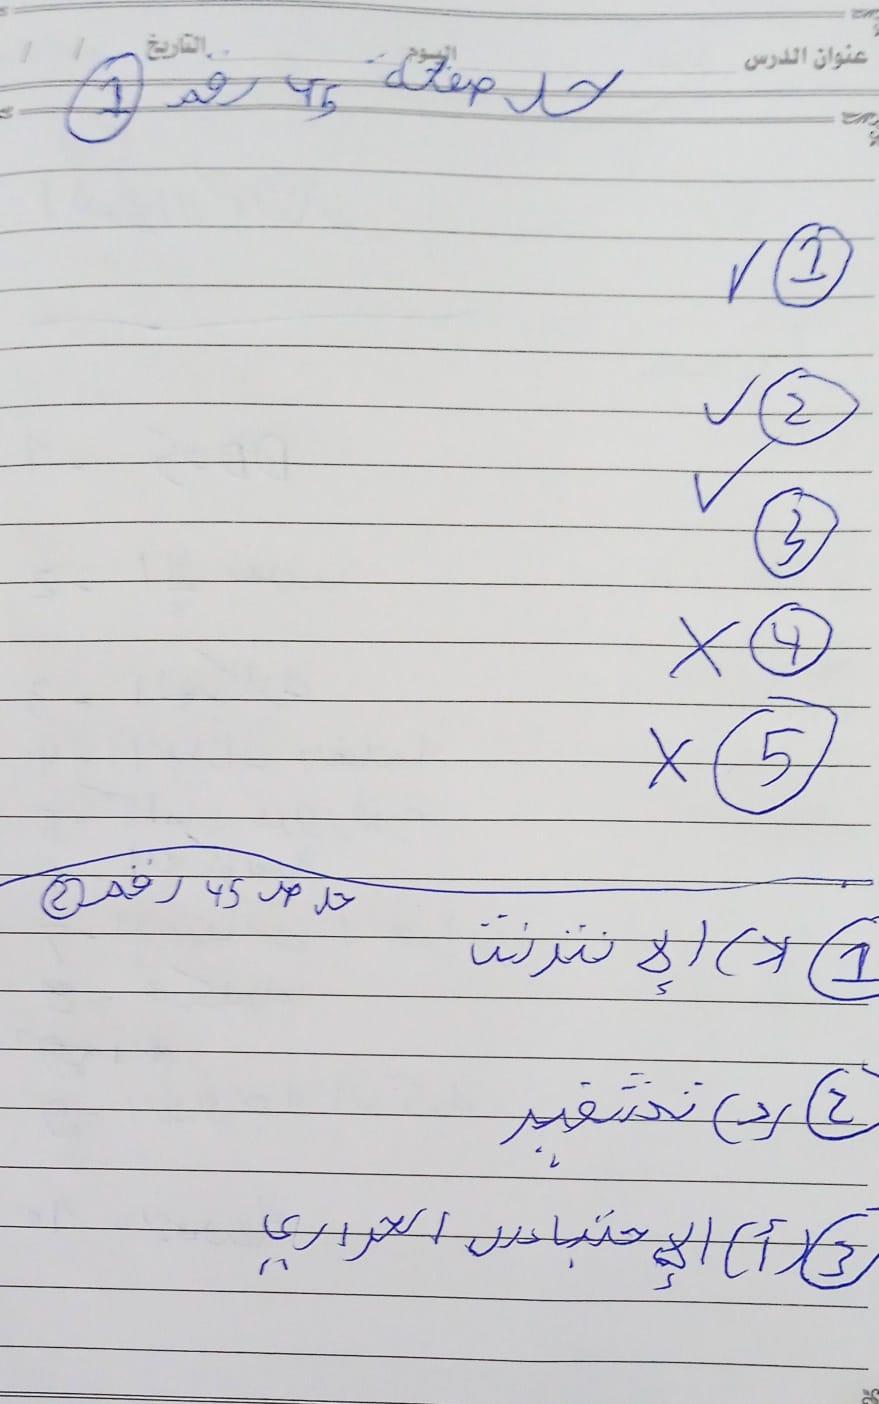 عنوان الدرس اليوم التاريخ / /
حل صفحة 45 رقم 1
1 ✓
2 ✓
3 ✓
4 X
5 X
حل ص 45 رقم 2
1 (د) الإنترنت
2 (د) تشفير
3 (أ) الإحتباس الحراري